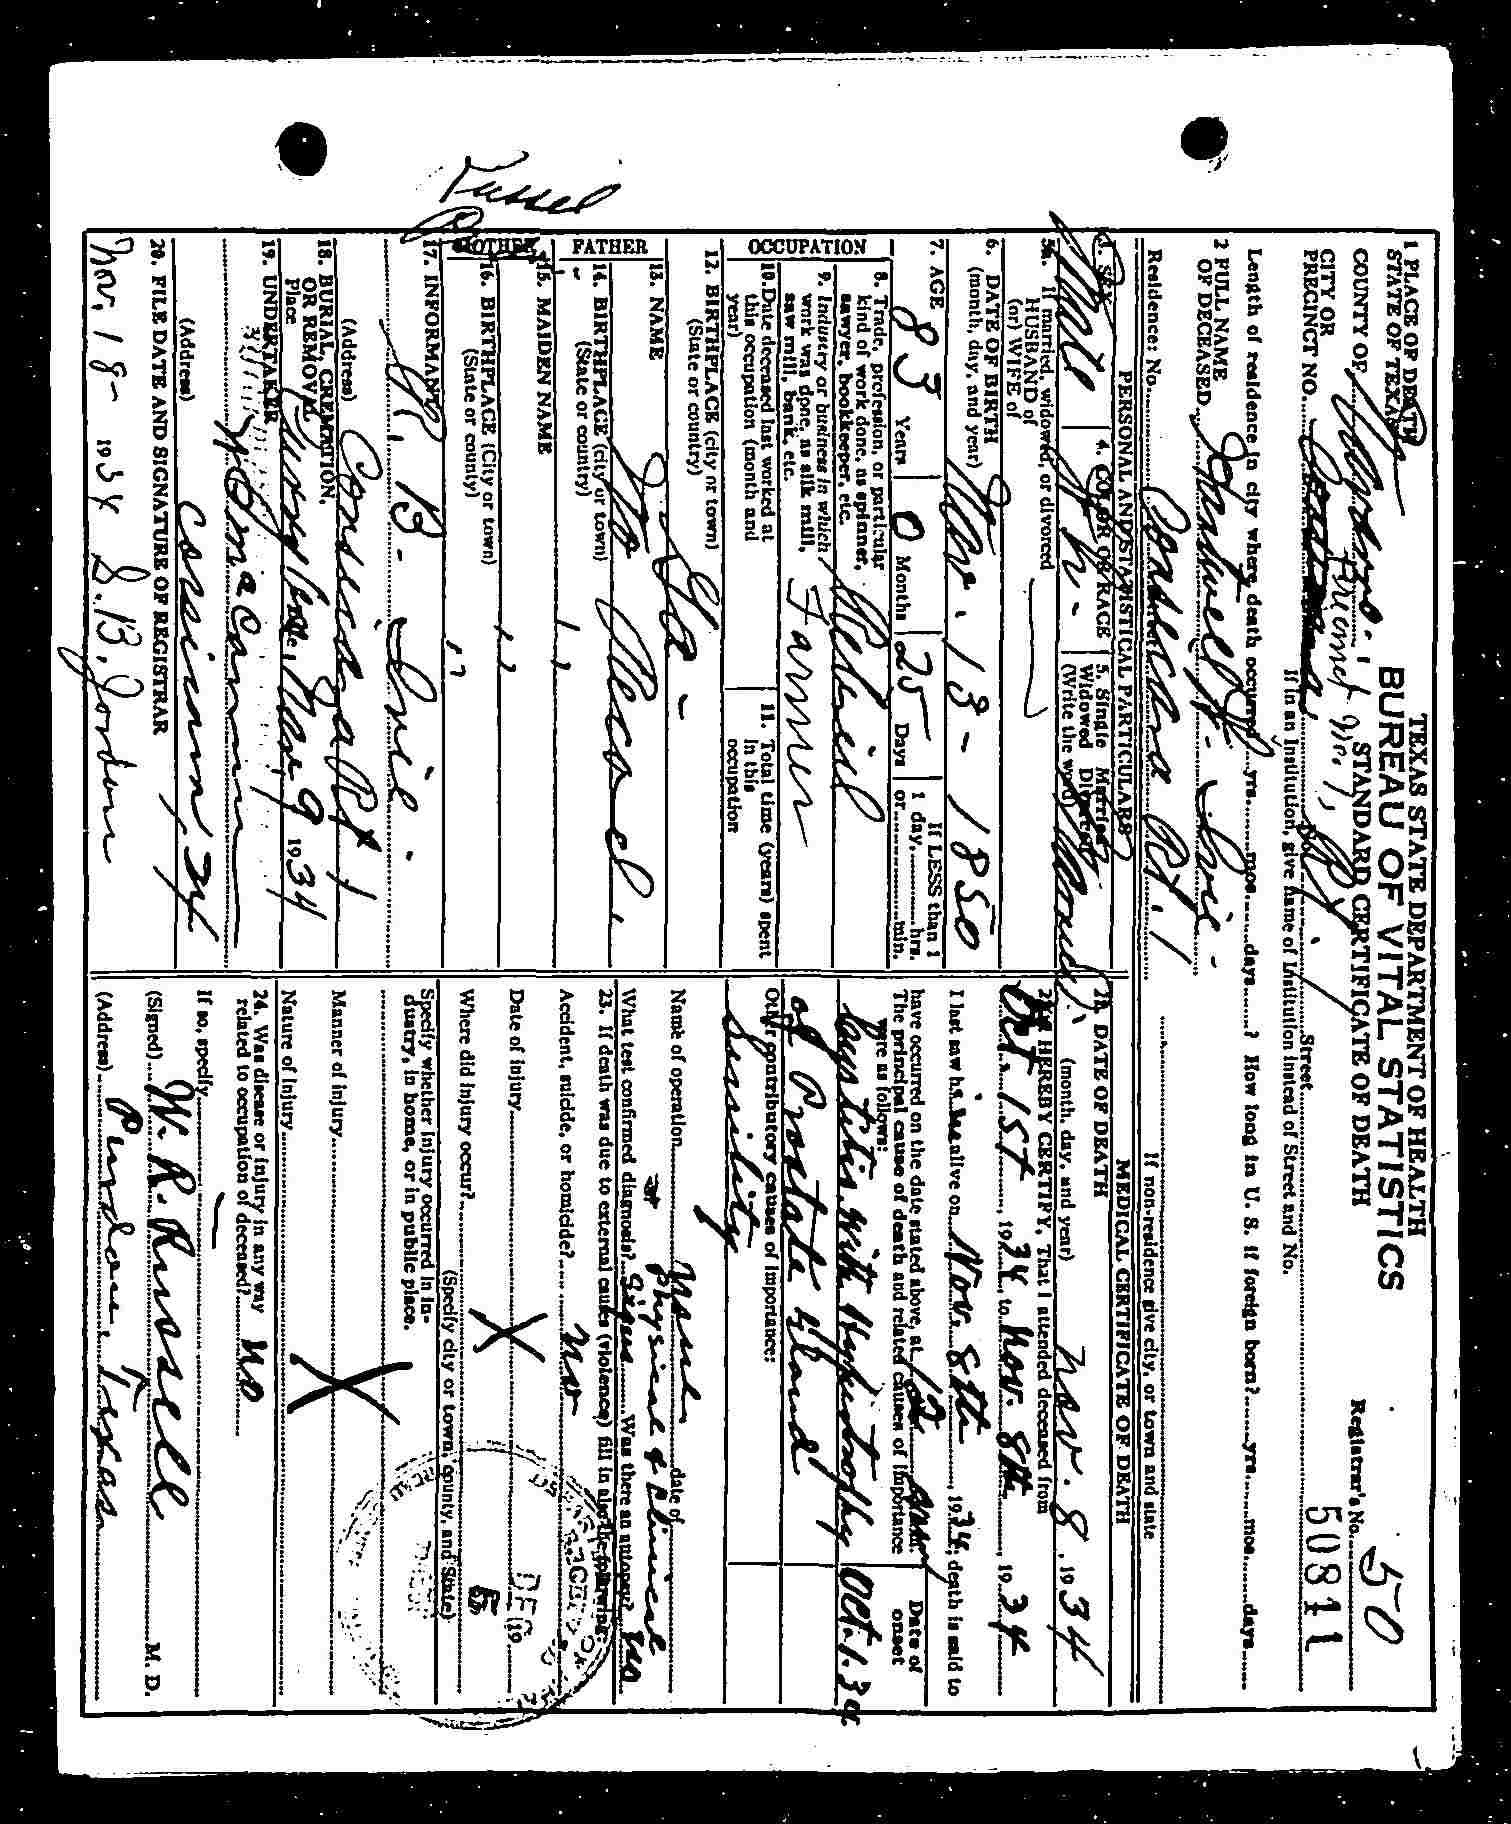 TEXAS STATE DEPARTMENT OF HEALTH
BUREAU OF VITAL STATISTICS
STANDARD CERTIFICATE OF DEATH
1 PLACE OF DEATH
STATE OF TEXAS
COUNTY OF Navarro
CITY OR
PRECINCT NO. Precinct No. 1, No. Street
Registrar's No. 50
50811
If in an Institution, give name of Institution instead of Street and No.
Length of residence in city where death occurred yrs. mos. days ? How long in U. S. if foreign born? yrs. mos. days
2 FULL NAME
OF DECEASED
Residence: No. Corsicana Rt. 1
If non-residence give city, or town and state
PERSONAL AND STATISTICAL PARTICULARS
3. SEX Male
4. COLOR OR RACE W.
5. Single Married
Widowed Divorced
(Write the word) Widowed
5a. If married, widowed, or divorced
HUSBAND of
(or) WIFE of
6. DATE OF BIRTH
(month, day, and year) Nov. 13 - 1850
7. AGE 83 Years 0 Months 25 Days
If LESS than 1
1 day, hrs.
or min.
OCCUPATION
8. Trade, profession, or particular
kind of work done, as spinner,
sawyer, bookkeeper, etc. Retired
9. Industry or business in which
work was done, as silk mill,
saw mill, bank, etc. Farmer
10. Date deceased last worked at
this occupation (month and
year)
11. Total time (years) spent
in this
occupation
12. BIRTHPLACE (city or town)
(State or country) Ga.
FATHER
13. NAME
14. BIRTHPLACE (city or town)
(State or country) No Record.
MOTHER
15. MAIDEN NAME " "
16. BIRTHPLACE (City or town)
(State or county) " "
17. INFORMANT R. B. Ivie.
(Address) Corsicana Rt 1
18. BURIAL, CREMATION,
OR REMOVAL
Place Nov 9 1934
19. UNDERTAKER
(Address) Corsicana, Tx
20. FILE DATE AND SIGNATURE OF REGISTRAR
Nov. 18- 1934 S. B. Jordan
Fussel
MEDICAL CERTIFICATE OF DEATH
21. DATE OF DEATH
(month, day, and year) Nov. 8, 1934
22. I HEREBY CERTIFY, That I attended deceased from
Oct. 1st, 1934, to Nov. 8th, 1934
I last saw him alive on Nov. 8th, 1934, death is said to
have occurred on the date stated above, at 12 m.
The principal cause of death and related causes of importance
were as follows:
Date of
onset
Cystitis with Hypertrophy Oct. 1. 34.
of Prostate Gland
Other contributory causes of importance:
Senility
Name of operation None date of
What test confirmed diagnosis? Physical & Clinical Signs Was there an autopsy? No
23. If death was due to external causes (violence) fill in also the following:
Accident, suicide, or homicide? No
Date of injury 19
Where did injury occur?
(Specify city or town, county, and State)
Specify whether injury occurred in in-
dustry, in home, or in public place.
Manner of injury
Nature of injury
24. Was disease or injury in any way
related to occupation of deceased? No
If so, specify
(Signed) W. R. Russell M. D.
(Address) Purdon, Texas
DEC 5